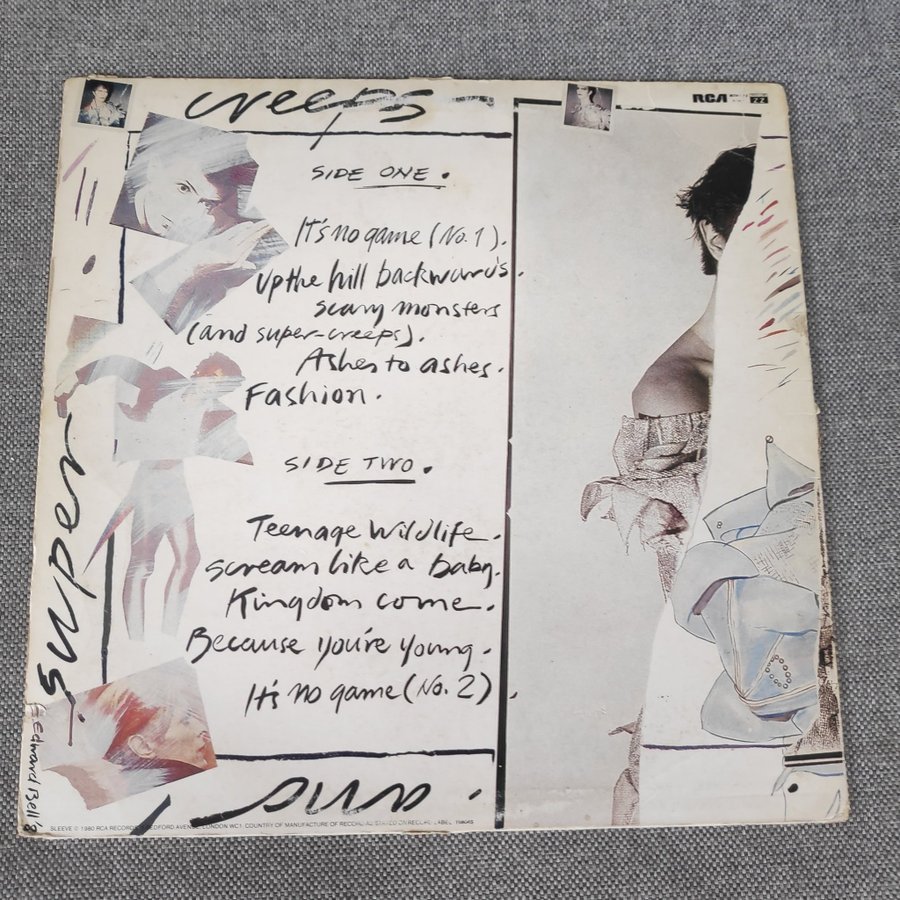 creeps
RCA
22
SIDE ONE.
It's no game (No. 1).
Up the hill backwards.
scary monsters
(and super-creeps).
Ashes to ashes.
Fashion.
SIDE TWO.
Teenage Wildlife.
scream like a baby.
Kingdom come.
Because you're young.
It's no game (No. 2).
super
Edward Bell '8
and
SLEEVE © 1980 RCA RECORDS, BEDFORD AVENUE, LONDON WC1. COUNTRY OF MANUFACTURE OF RECORD AS STATED ON RECORD LABEL.